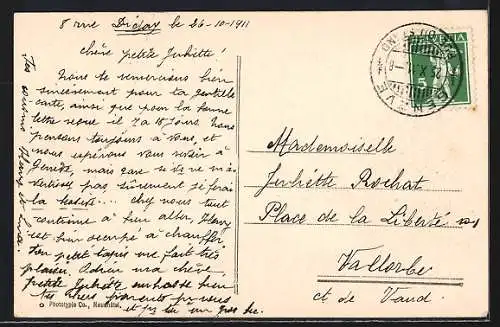 8 rue Diday le 26-10-1911
Chère petite Juliette!
Nous te remercions bien
sincèrement pour ta gentille
carte, ainsi que pour la bonne
lettre reçue il y a 15 jours. Nous
pensons toujours à vous, et
nous espérons vous voir à
Genève, mais que si ne m'a
vertissez pas, sûrement je ferai
la ... chez nous tout
continue à bien aller, Henry
est bien occupé à chauffer
ton petit tapis me fait très
plaisir. Adieu ma chère
petite Juliette embrasse bien
tes chers parents pr nous
et pr toi un gros bec.
Mademoiselle
Juliette Rochat
Place de la Liberté
Vallorbe
ct de Vaud.
Phototypie Co., Neuchâtel.
HELVETIA
GENÈVE